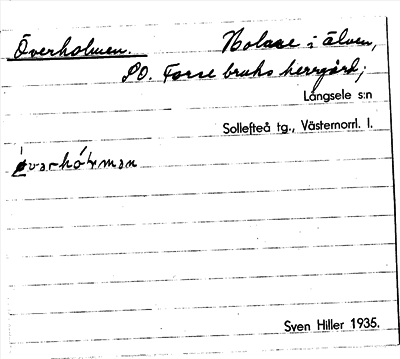 Överholmen. Holme i älven,
SO. Forse bruks herrgård;
Långsele s:n
Sollefteå tg., Västernorrl. l.
Sven Hiller 1935.